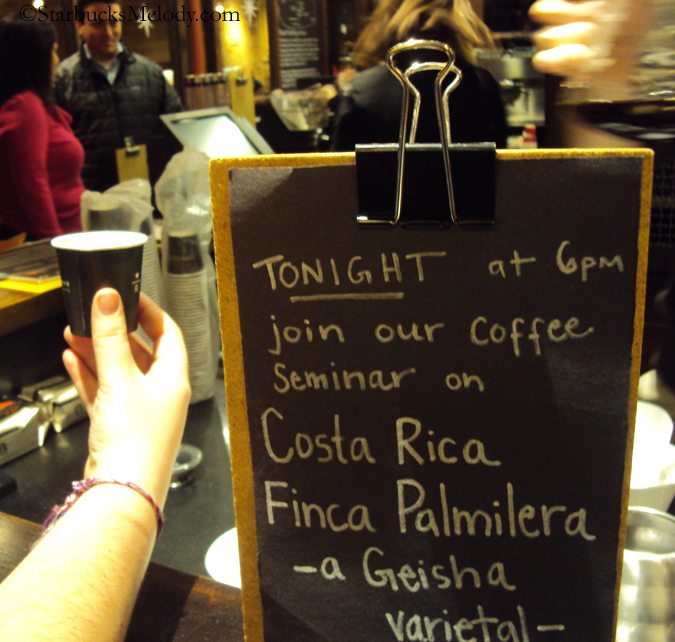 ©StarbucksMelody.com
TONIGHT at 6pm
join our coffee
seminar on
Costa Rica
Finca Palmilera
-a Geisha
varietal-